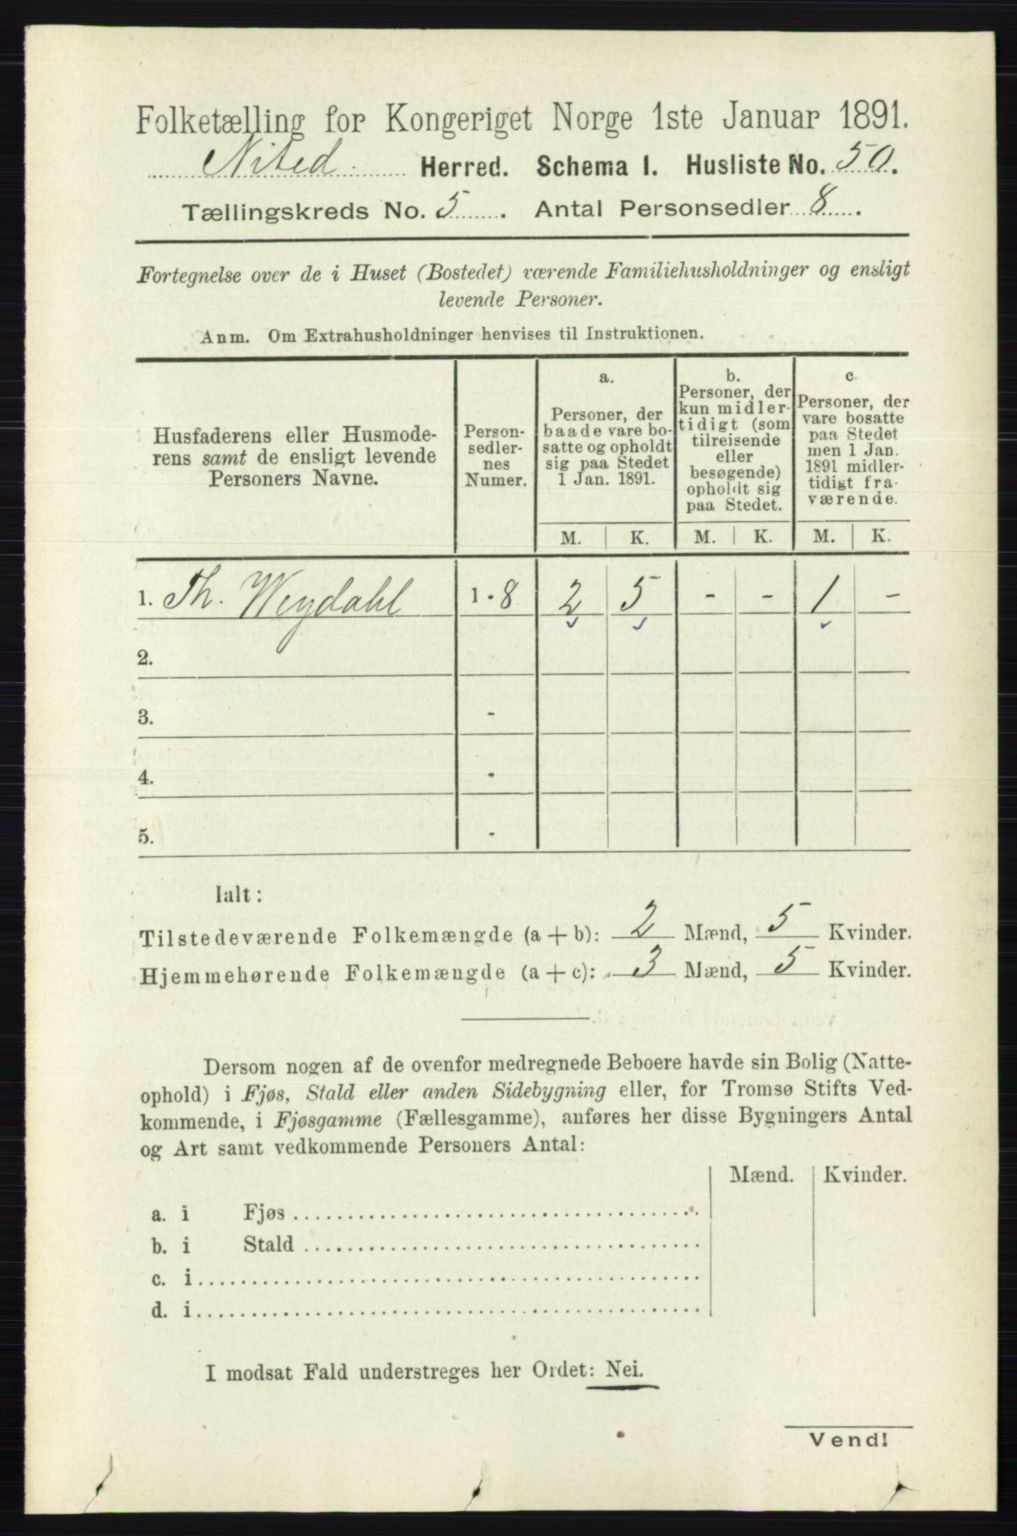 Folketælling for Kongeriget Norge 1ste Januar 1891.
Nited Herred. Schema I. Husliste No. 50.
Tællingskreds No. 5. Antal Personsedler 8.
Fortegnelse over de i Huset (Bostedet) værende Familiehusholdninger og ensligt
levende Personer.
Anm. Om Extrahusholdninger henvises til Instruktionen.
Husfaderens eller Husmode-
rens samt de ensligt levende
Personers Navne.
Person-
sedler-
nes
Numer.
a.
Personer, der
baade vare bo-
satte og opholdt
sig paa Stedet
1 Jan. 1891.
b.
Personer, der
kun midler-
tidigt (som
tilreisende
eller
besøgende)
opholdt sig
paa Stedet.
c.
Personer, der
vare bosatte
paa Stedet
men 1 Jan.
1891 midler-
tidigt fra-
værende.
M. K. M. K. M. K.
1. Th. Weydahl 1 - 8 2 5 - - 1 -
2.
3. -
4. -
5. -
Ialt:
Tilstedeværende Folkemængde (a + b): 2 Mænd, 5 Kvinder.
Hjemmehørende Folkemængde (a + c): 3 Mænd, 5 Kvinder.
Dersom nogen af de ovenfor medregnede Beboere havde sin Bolig (Natte-
ophold) i Fjøs, Stald eller anden Sidebygning eller, for Tromsø Stifts Ved-
kommende, i Fjøsgamme (Fællesgamme), anføres her disse Bygningers Antal
og Art samt vedkommende Personers Antal:
Mænd. Kvinder.
a. i Fjøs
b. i Stald
c. i
d. i
I modsat Fald understreges her Ordet: Nei.
Vend!